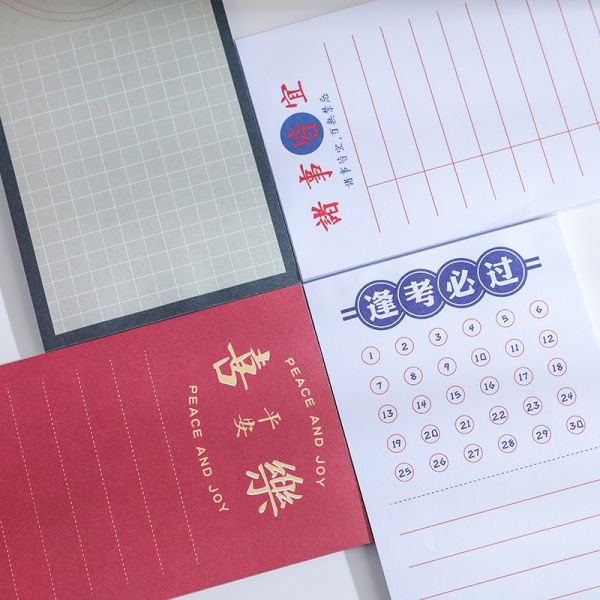 諸事皆宜
諸事皆宜,百無禁忌
逢考必过
1 2 3 4 5 6
7 8 9 10 11 12
13 14 15 16 17 18
19 20 21 22 23 24
25 26 27 28 29 30
PEACE AND JOY
喜樂
平安
PEACE AND JOY